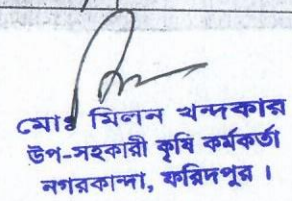 মোঃ মিলন খন্দকার
উপ-সহকারী কৃষি কর্মকর্তা
নগরকান্দা, ফরিদপুর।